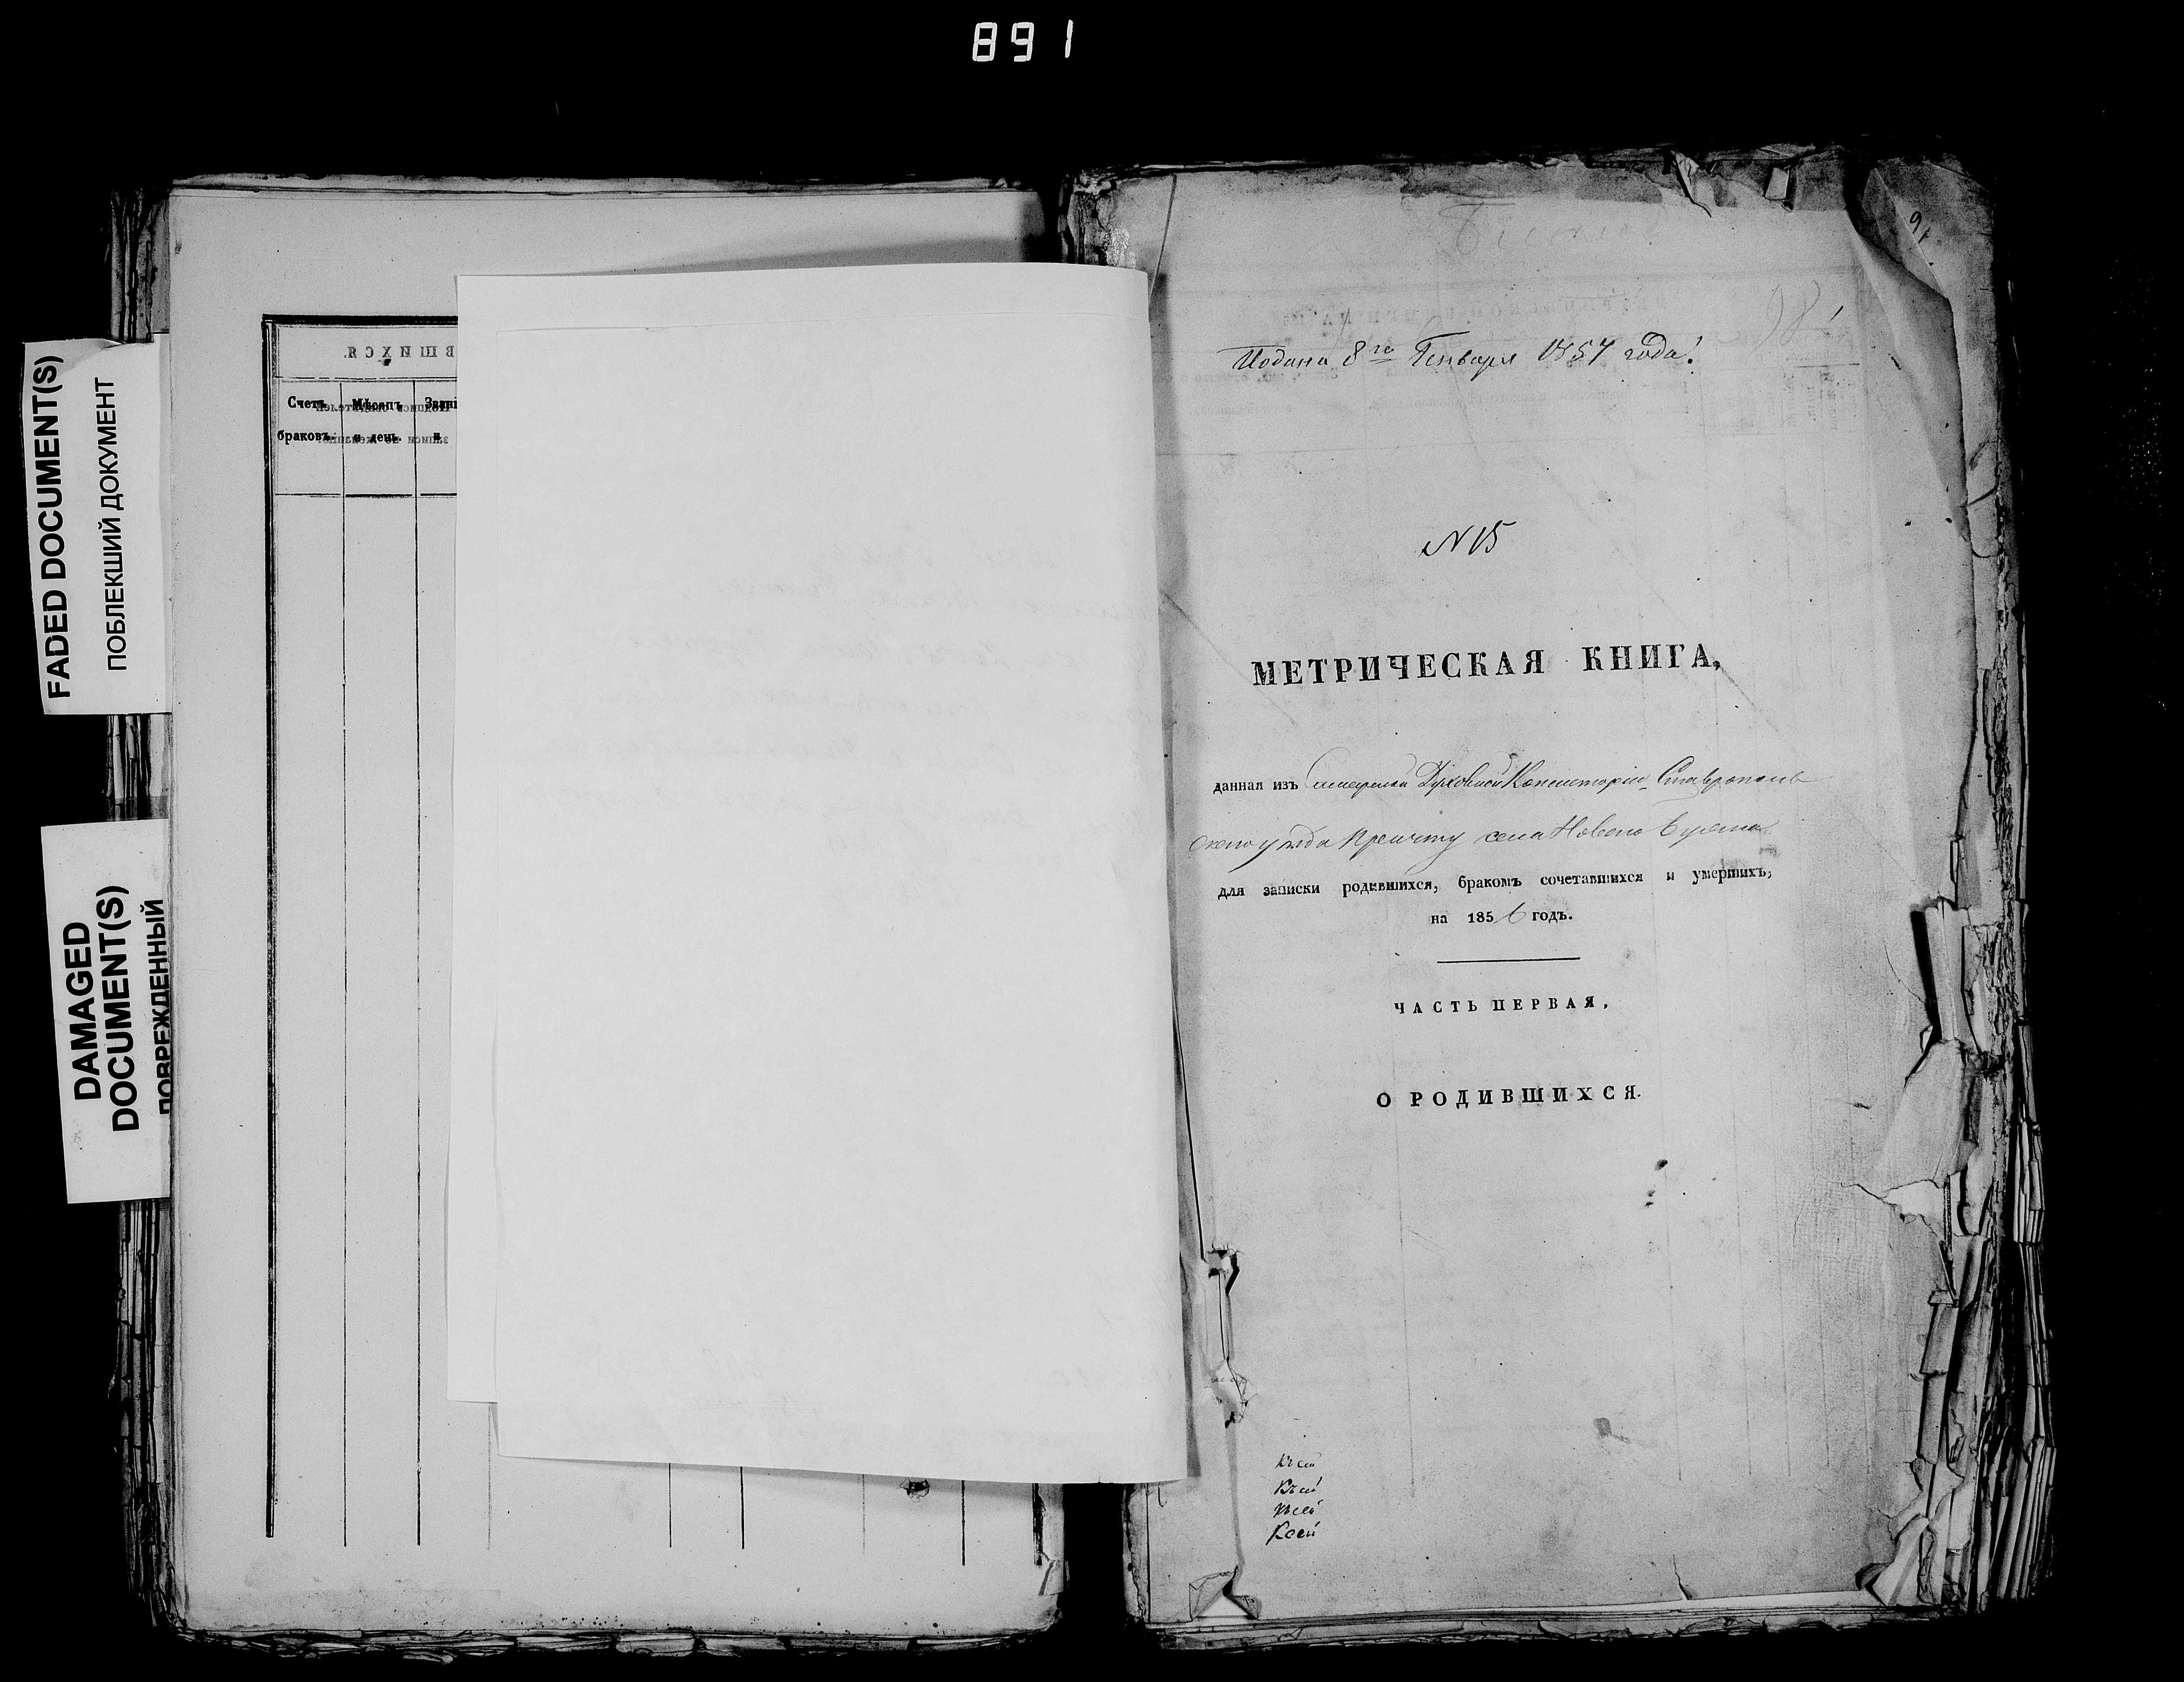 891
FADED DOCUMENT(S)
ПОБЛЕКШИЙ ДОКУМЕНТ
DAMAGED
DOCUMENT(S)
ПОВРЕЖДЕННЫЙ
Счетъ
браковъ.
Мѣсяцъ
и день.
Звані
и
91
Подана 8го Генваря 1857 года.
N 15
МЕТРИЧЕСКАЯ КНИГА,
данная изъ Самарской Духовной Консисторіи, Ставрополь
скаго уѣзда причту села Новаго Буяна
для записки родившихся, бракомъ сочетавшихся и умершихъ,
на 1856 годъ.
ЧАСТЬ ПЕРВАЯ,
О РОДИВШИХСЯ.
Къ сей
Къ сей
Къ сей
Ксей